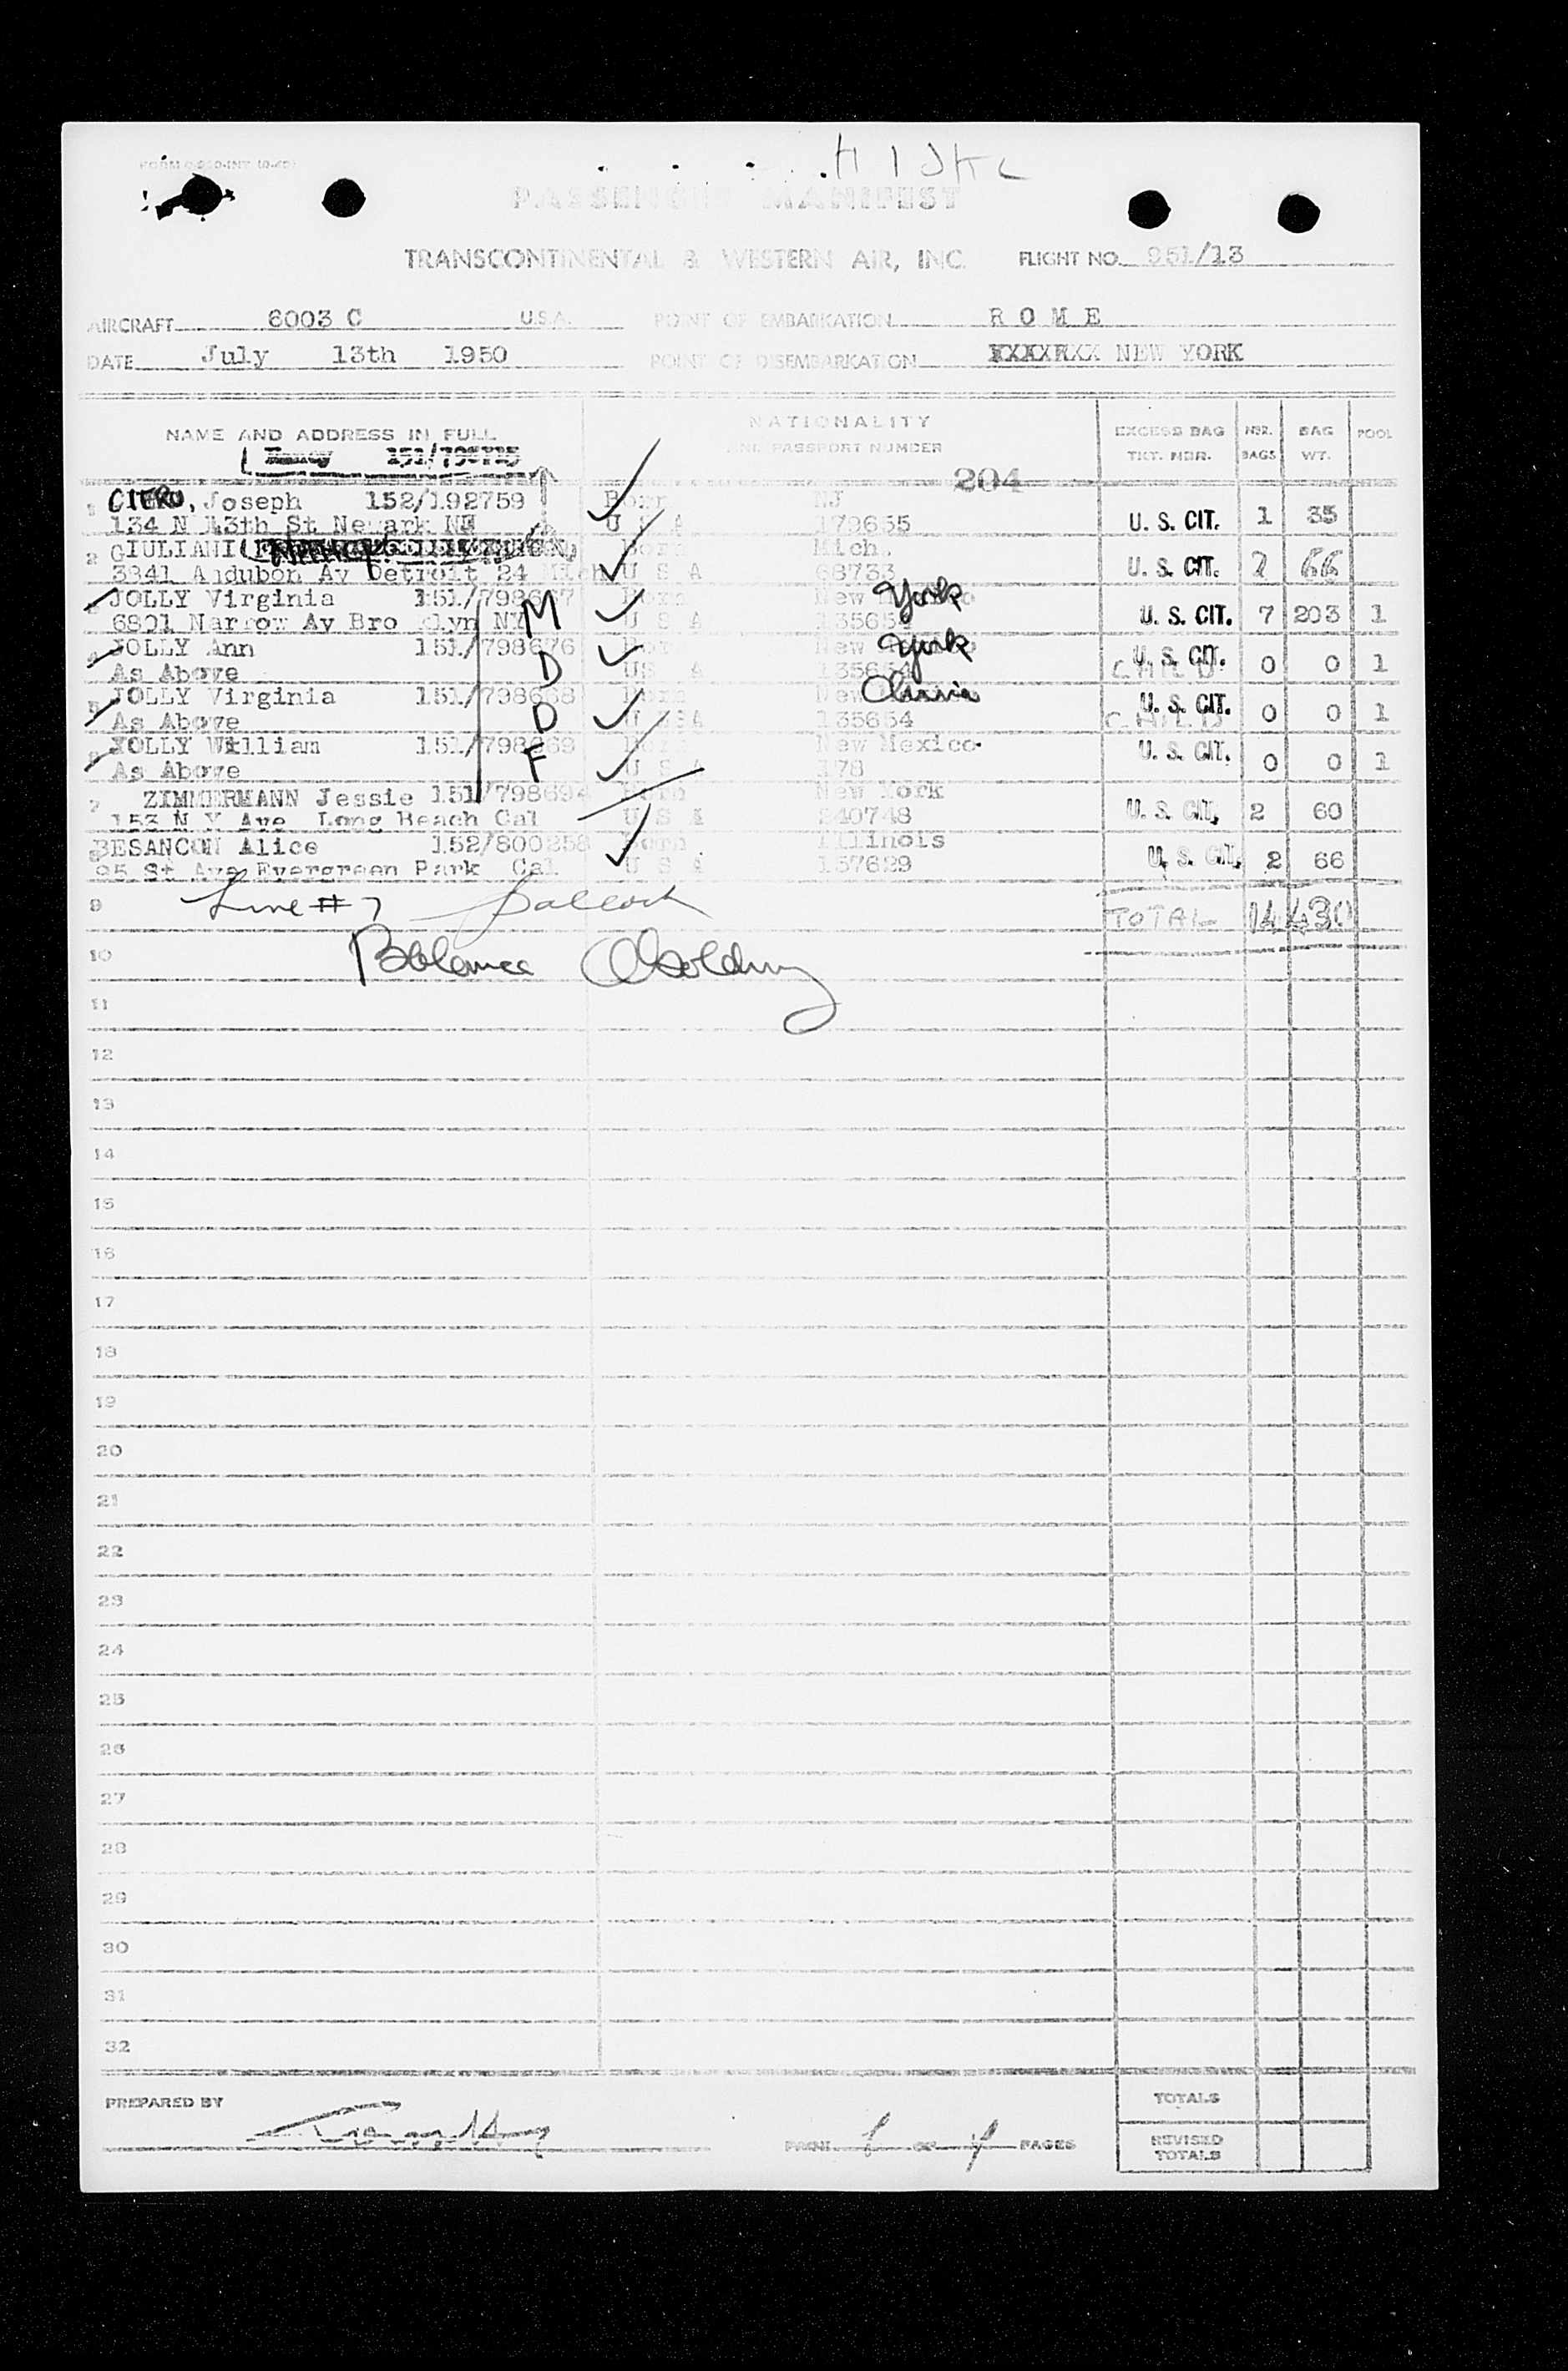 PASSENGER MANIFEST
TRANSCONTINENTAL & WESTERN AIR, INC. FLIGHT NO. 951/13
AIRCRAFT 6003 C U.S.A. POINT OF EMBARKATION R O M E
DATE July 13th 1950 POINT OF DISEMBARKATION NEW YORK
NAME AND ADDRESS IN FULL NATIONALITY AND PASSPORT NUMBER EXCESS BAG TKT. NBR. NBR. BAGS BAG WT. POOL
204
1 CITERO, Joseph 152/192759 Born NJ
134 N 13th St Newark U S A 179655 U. S. CIT. 1 35
2 GIULIANI Born Mich.
3841 Audubon Av Detroit 24 Mich U S A 68733 U. S. CIT. 2 66
JOLLY Virginia 151/798677 Born New York
6801 Narrow Av Brooklyn NY M U S A 135654 U. S. CIT. 7 203 1
4 JOLLY Ann 151/798676 Born New York
As Above D US A 135654 CHILD U. S. CIT. 0 0 1
5 JOLLY Virginia 151/798668 Born New
As Above D U S A 135654 CHILD U. S. CIT. 0 0 1
JOLLY William 151/798669 Born New Mexico
As Above F U S A 178 U. S. CIT. 0 0 1
7 ZIMMERMANN Jessie 151/798694 Born New York
153 N Y Ave Long Beach Cal U S A 240748 U. S. CIT. 2 60
BESANCON Alice 152/800258 Born Illinois
95 St Ave Evergreen Park Cal U S A 157629 U. S. CIT. 2 66
9 Line # 7 TOTAL 14 430
10
11
12
13
14
15
16
17
18
19
20
21
22
23
24
25
26
27
28
29
30
31
32
PREPARED BY TOTALS
PAGES REVISED TOTALS